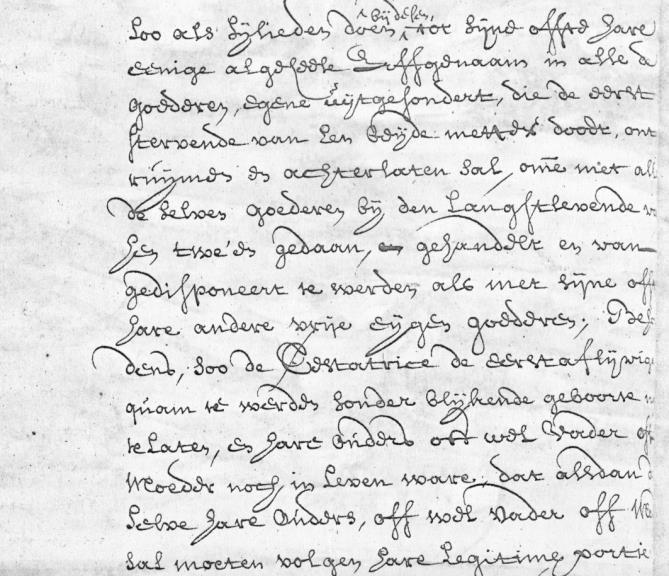 bij desen,
Soo als sijlieden doen tot sijne offte hare
eenige algeheele Erffgenaam in alle de
goederen, egene uijtgesondert, die de eerst
stervende van hen beijde metter doodt, ont
ruijmen en achterlaten sal, ome met all
de selven goederen bij den Langstlevende v
hen twe'en gedaan, gehandelt en van
gedisponeert te werden als met sijne off
hare andere vrije eijgen goederen; Beh
dens, soo de Testatrice de eerstaflijvige
quam te werden sonder blijkende geboorte n
te laten, en hare Ouders ofte wel Vader off
Moeder noch in Leven ware, dat alsdan d
selve hare Ouders, off wel Vader off Mo
sal moeten volgen hare Legitime portie